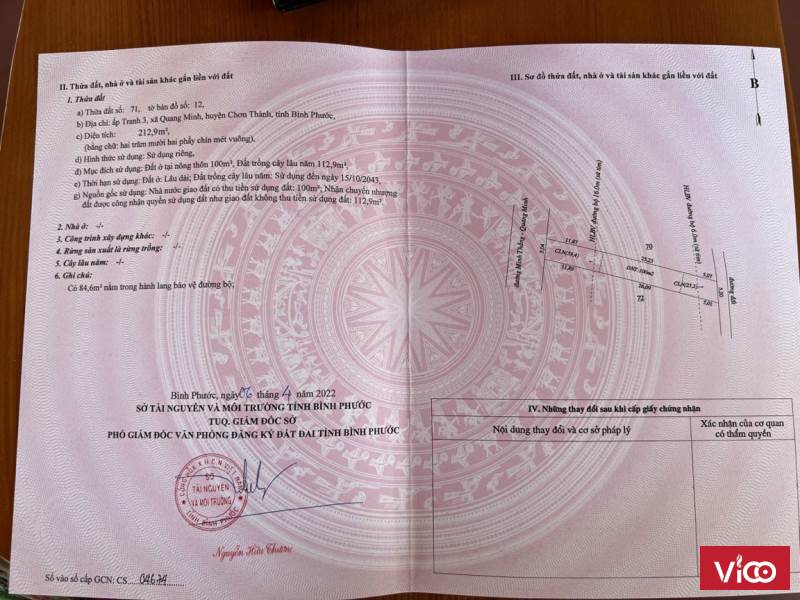 II. Thửa đất, nhà ở và tài sản khác gắn liền với đất
1. Thửa đất
a) Thửa đất số: 71, tờ bản đồ số: 12,
b) Địa chỉ: ấp Tranh 3, xã Quang Minh, huyện Chơn Thành, tỉnh Bình Phước,
c) Diện tích: 212,9m²,
(bằng chữ: hai trăm mười hai phẩy chín mét vuông),
d) Hình thức sử dụng: Sử dụng riêng,
đ) Mục đích sử dụng: Đất ở tại nông thôn 100m², Đất trồng cây lâu năm 112,9m²,
e) Thời hạn sử dụng: Đất ở: Lâu dài; Đất trồng cây lâu năm: Sử dụng đến ngày 15/10/2043,
g) Nguồn gốc sử dụng: Nhà nước giao đất có thu tiền sử dụng đất: 100m²; Nhận chuyển nhượng
đất được công nhận quyền sử dụng đất như giao đất không thu tiền sử dụng đất: 112,9m².
2. Nhà ở: -/-
3. Công trình xây dựng khác: -/-
4. Rừng sản xuất là rừng trồng: -/-
5. Cây lâu năm: -/-
6. Ghi chú:
Có 84,6m² nằm trong hành lang bảo vệ đường bộ;
Bình Phước, ngày 06 tháng 4 năm 2022
SỞ TÀI NGUYÊN VÀ MÔI TRƯỜNG TỈNH BÌNH PHƯỚC
TUQ. GIÁM ĐỐC SỞ
PHÓ GIÁM ĐỐC VĂN PHÒNG ĐĂNG KÝ ĐẤT ĐAI TỈNH BÌNH PHƯỚC
CỘNG HÒA X.H.C.N VIỆT NAM
SỞ
TÀI NGUYÊN
VÀ MÔI TRƯỜNG
TỈNH BÌNH PHƯỚC
Nguyễn Hữu
Số vào sổ cấp GCN: CS 04674
III. Sơ đồ thửa đất, nhà ở và tài sản khác gắn liền với đất
B
đường Minh Thắng - Quang Minh
HLBV đường bộ 16.0m (từ tim)
HLBV đường bộ 6.0m (từ tim)
đường đất
70
11,87
25,23
5,07
CLN(59,4)
ONT
CLN(25,2)
5,20
20,00
5,01
72
IV. Những thay đổi sau khi cấp giấy chứng nhận
Nội dung thay đổi và cơ sở pháp lý
Xác nhận của cơ quan
có thẩm quyền
ViCO